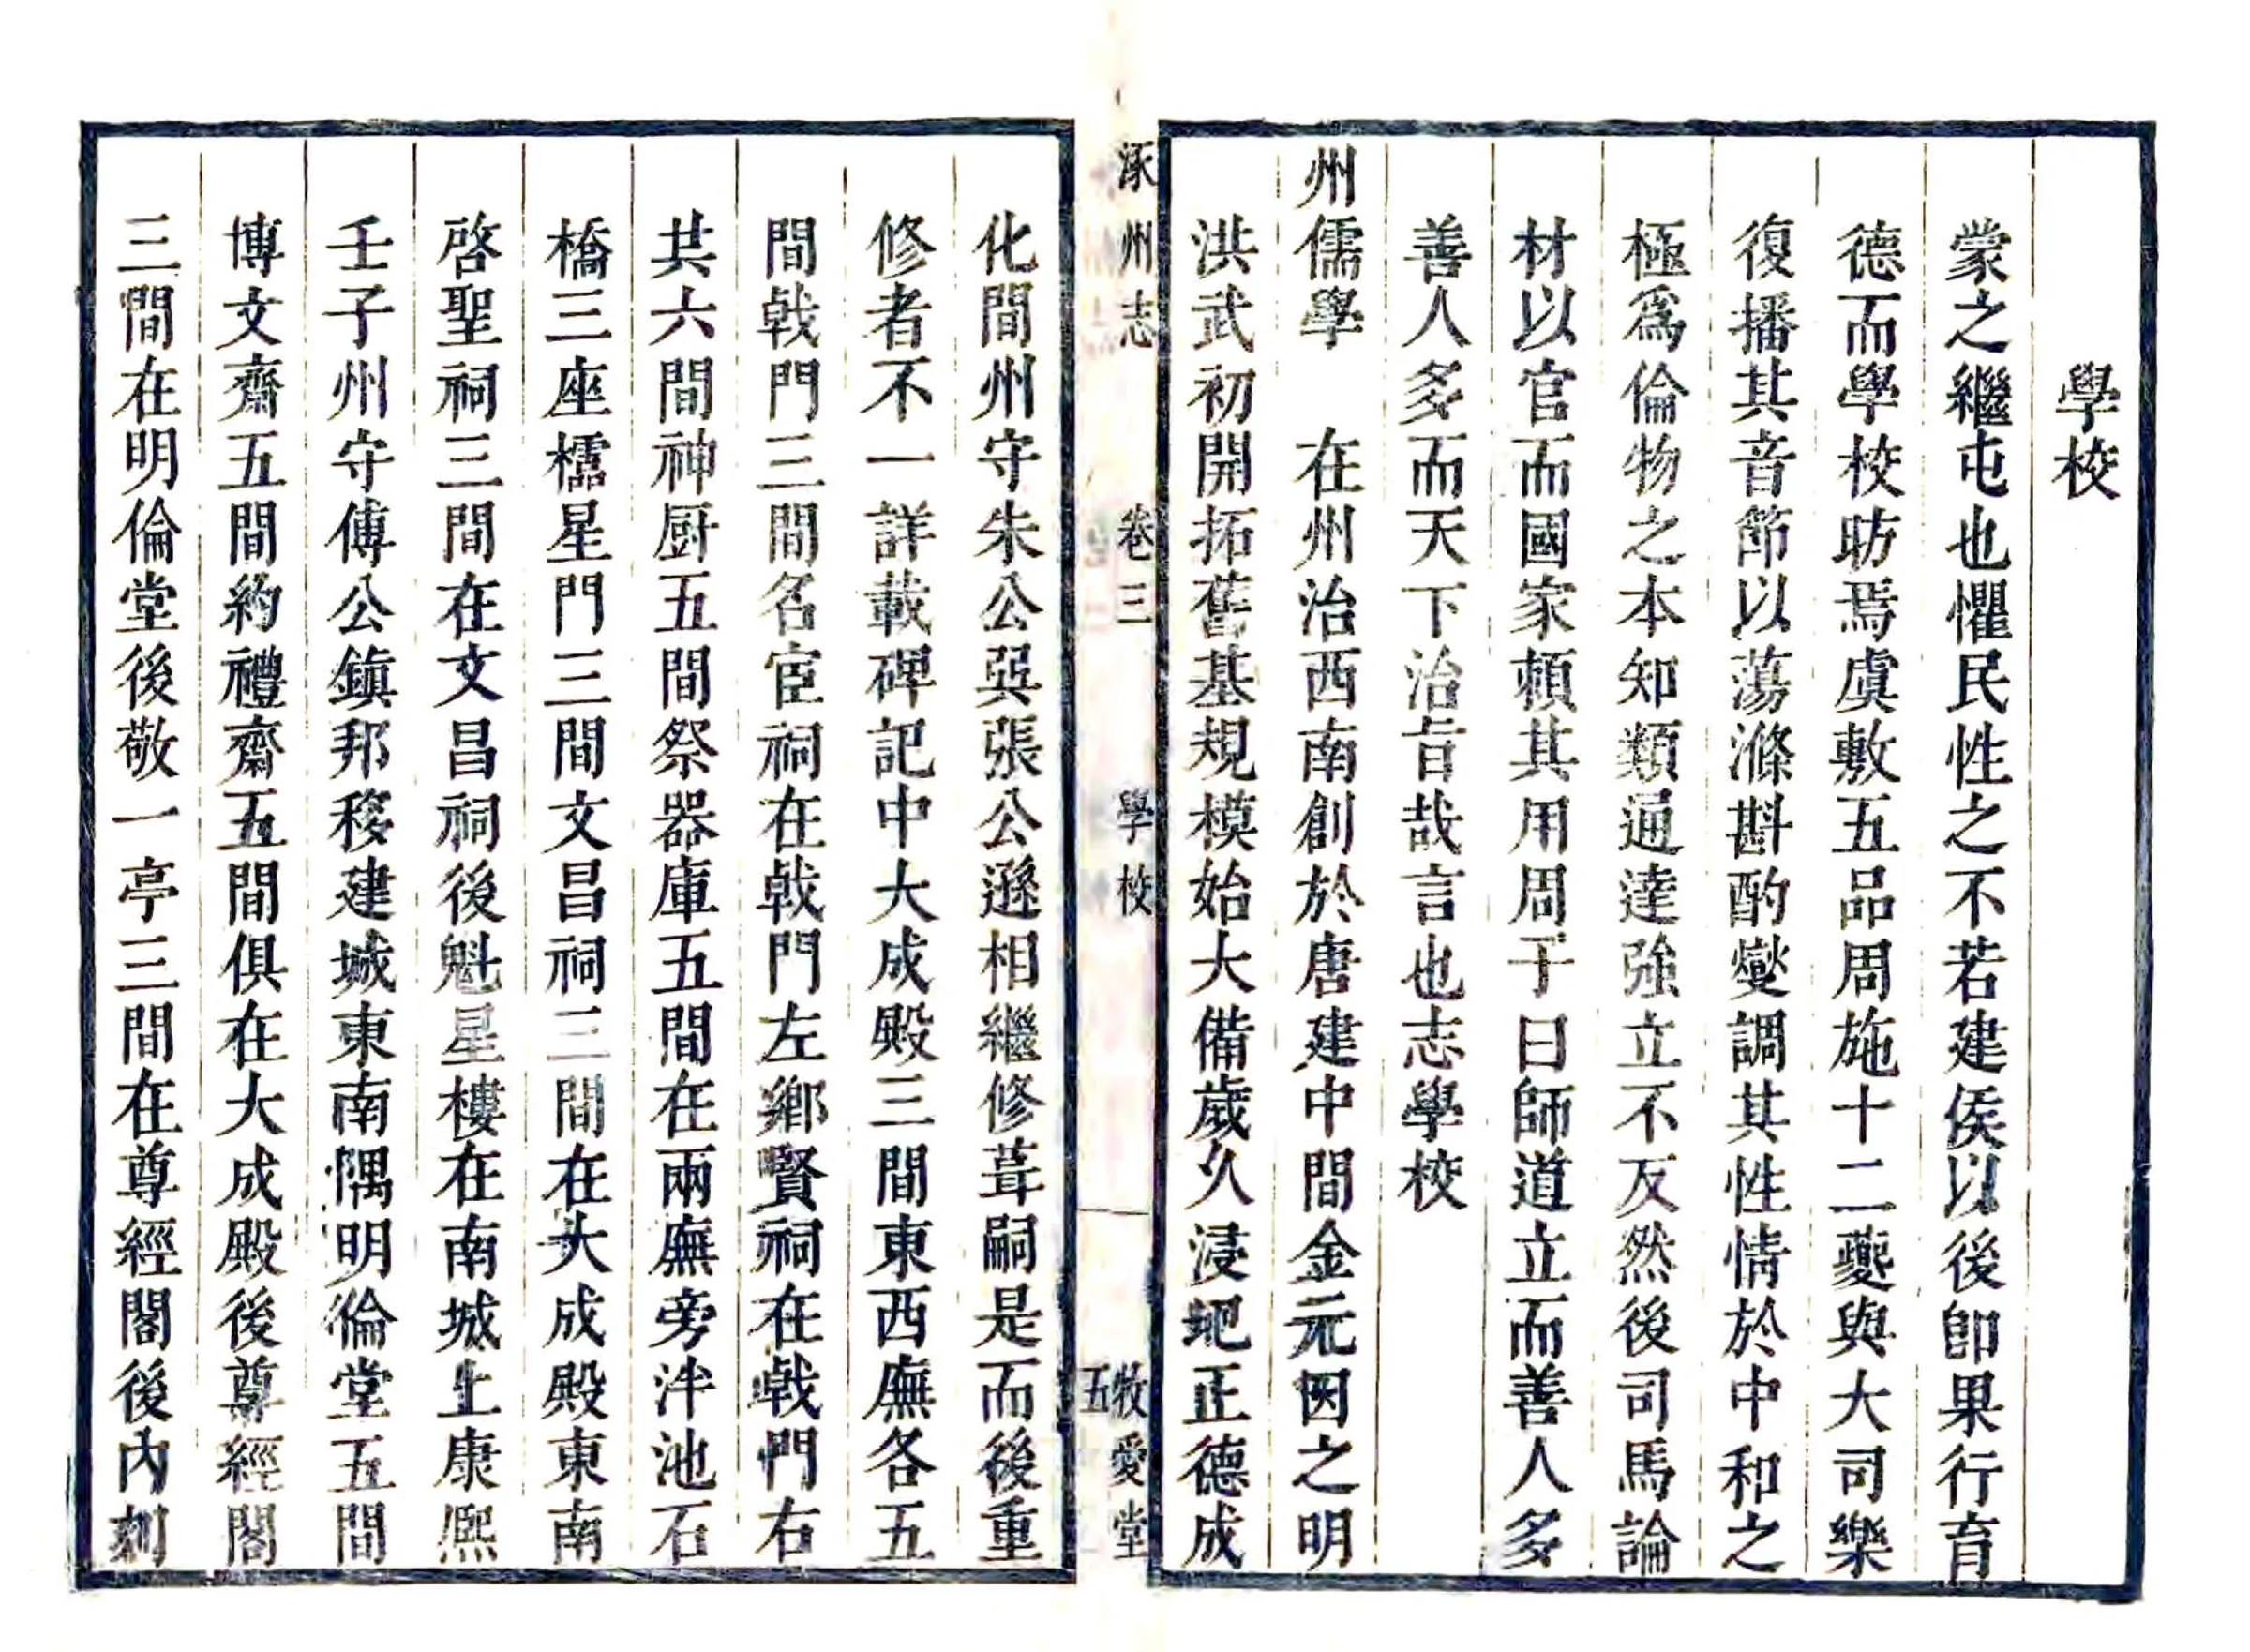 學校
蒙之繼屯也懼民性之不若建侯以後卽果行育
德而學校昉焉虞敷五品周施十二夔與大司樂
復播其音節以蕩滌斟酌燮調其性情於中和之
極爲倫物之本知類通達強立不反然後司馬論
材以官而國家頼其用周子曰師道立而善人多
善人多而天下治旨哉言也志學校
州儒學　在州治西南創於唐建中間金元因之明
洪武初開拓舊基規模始大備歲久浸圮正德成
涿州志　卷三　學校　五　牧愛堂
化間州守朱公巽張公遜相繼修葺嗣是而後重
修者不一詳載碑記中大成殿三間東西廡各五
間戟門三間名宦祠在戟門左鄉賢祠在戟門右
共六間神厨五間祭器庫五間在兩廡旁泮池石
橋三座櫺星門三間文昌祠三間在大成殿東南
啓聖祠三間在文昌祠後魁星樓在南城上康熙
壬子州守傅公鎮邦移建城東南隅明倫堂五間
博文齋五間約禮齋五間俱在大成殿後尊經閣
三間在明倫堂後敬一亭三間在尊經閣後內刻